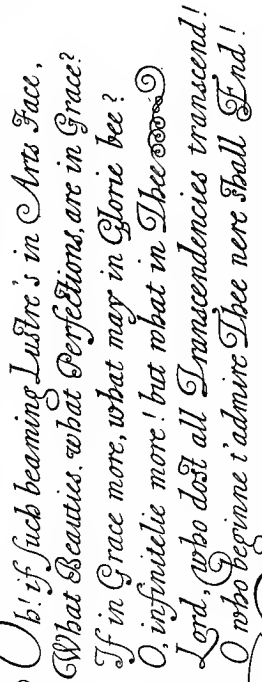 Oh! if ſuch beaming Luſtre's in Arts Face,
What Beauties, what Perfections, are in Grace?
If in Grace more, what may in Glorie bee?
O, infinitelie more! but what in Thee
Lord, who doſt all Transcendencies transcend!
O who beginne t'admire Thee nere ſhall End!